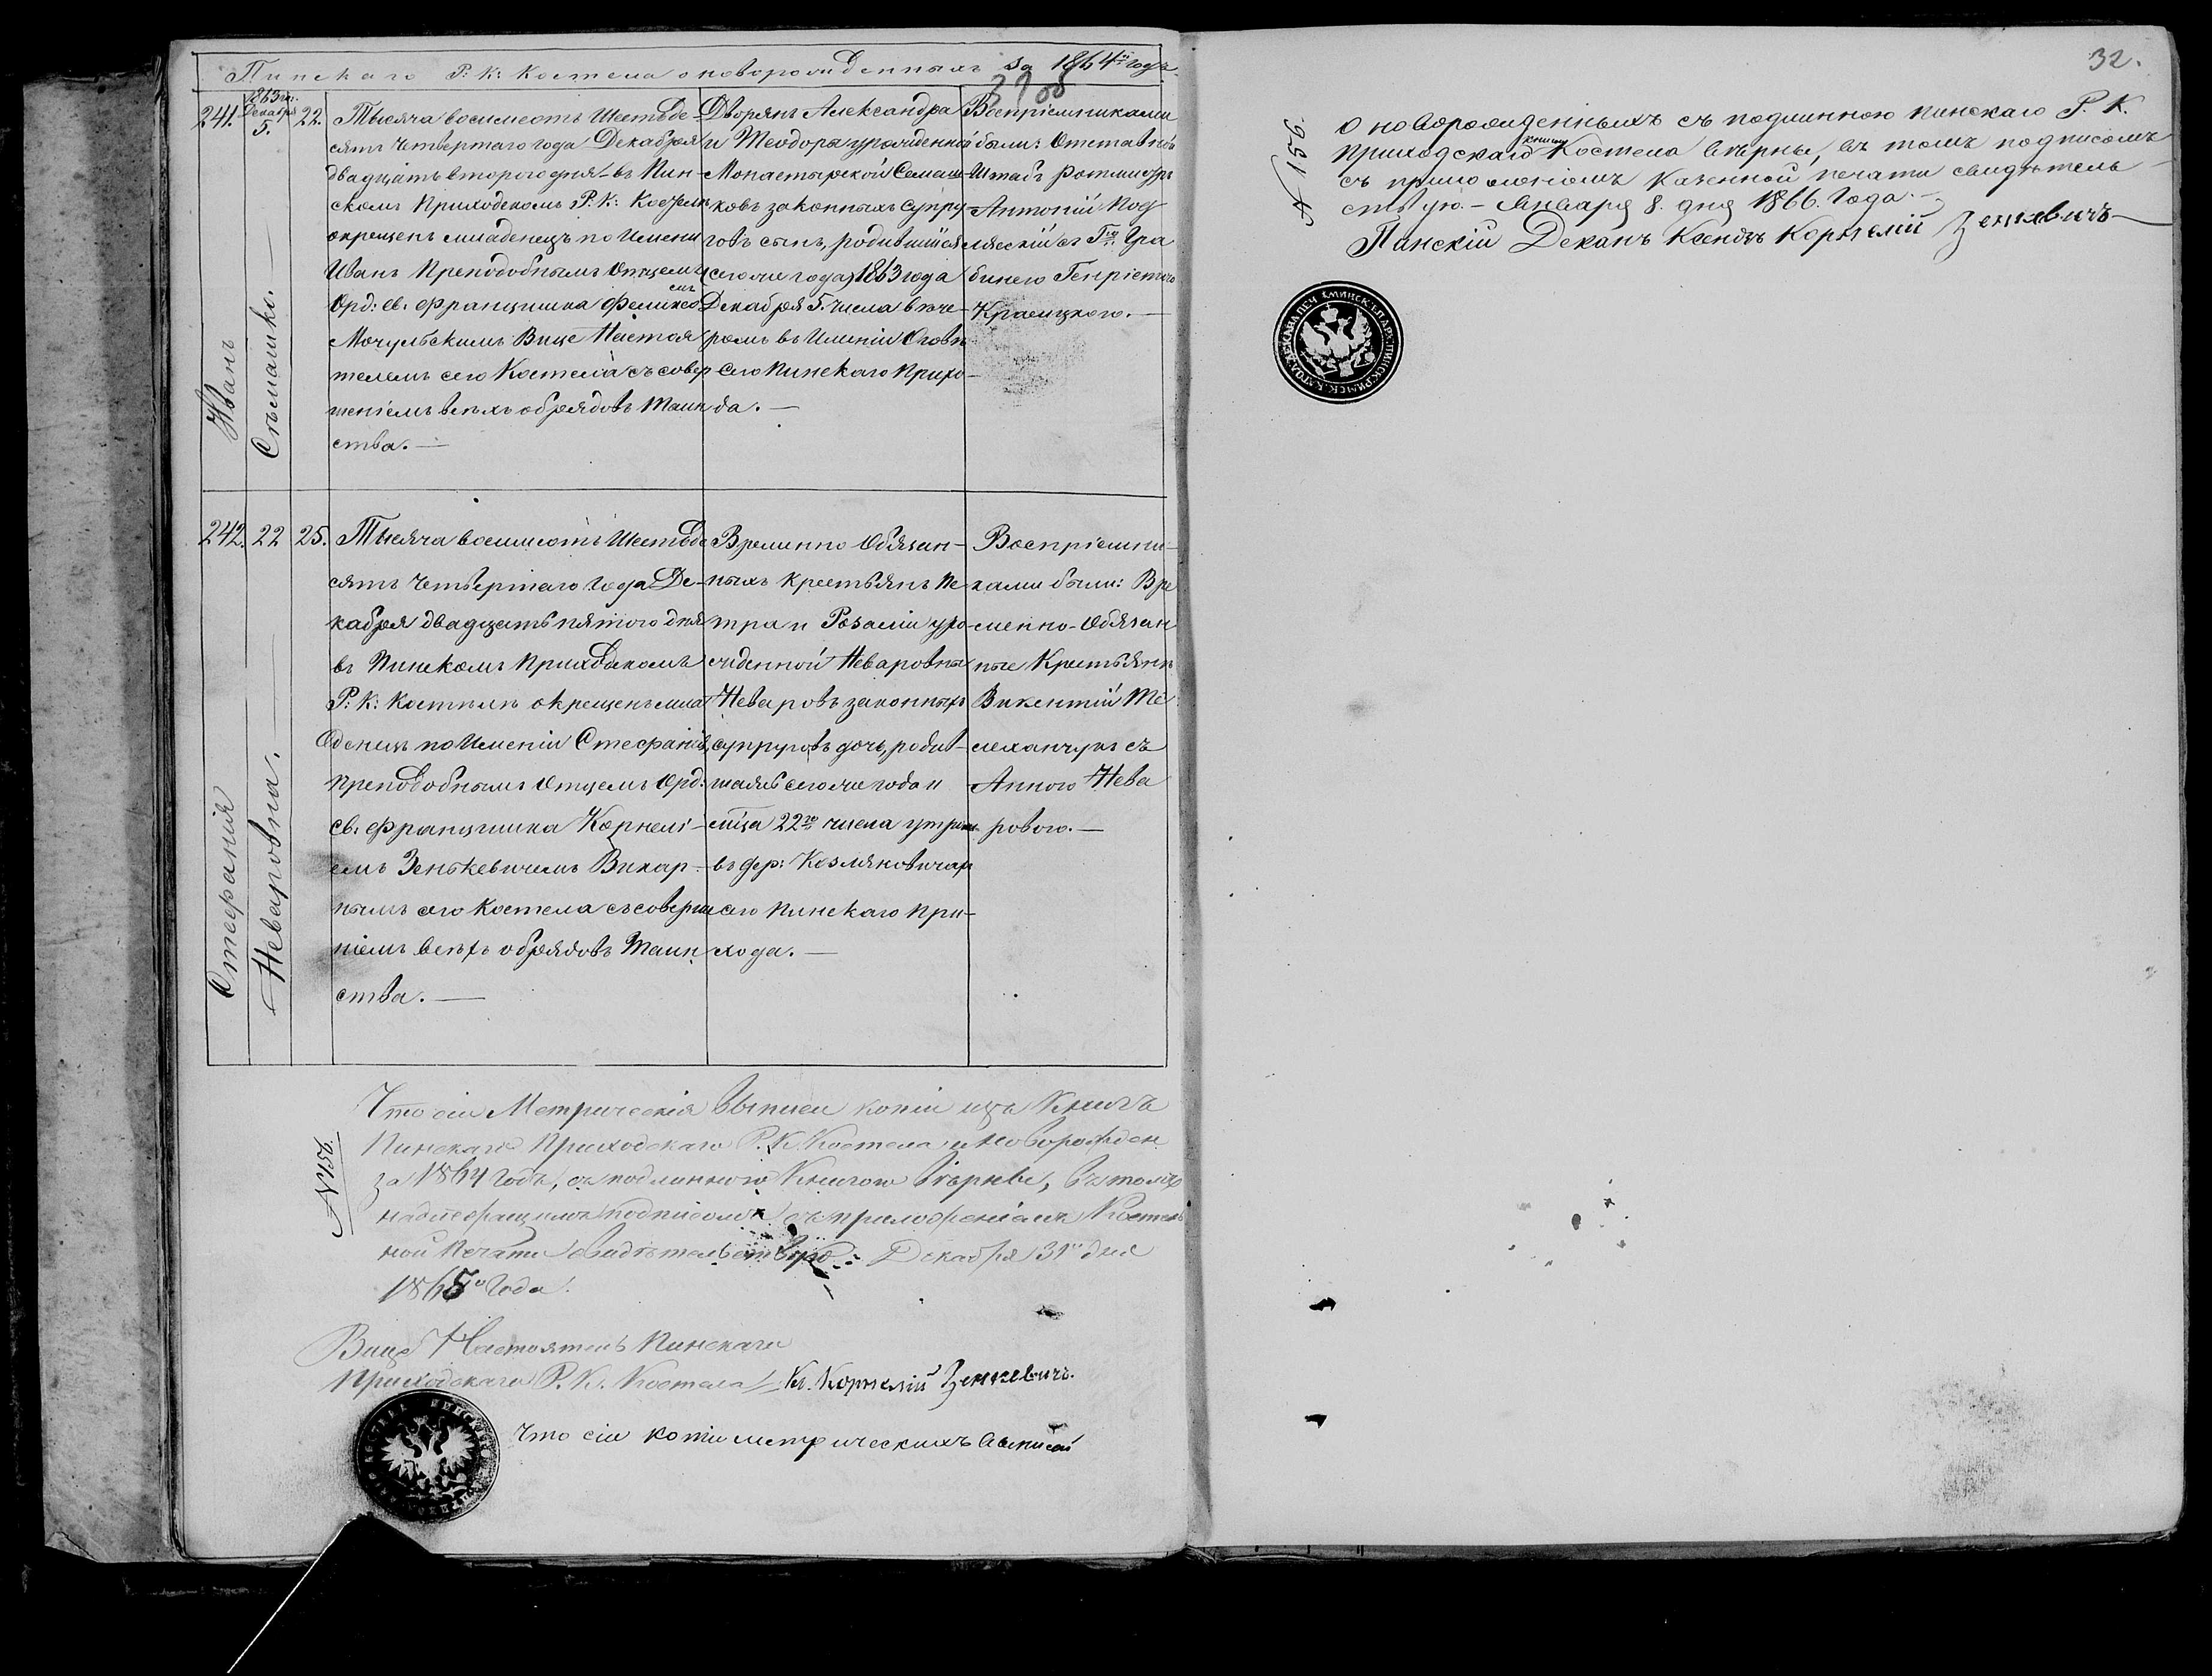 Пинскаго Р: К: Костела о новорожденныхъ за 1864й годъ.
241.
1863 го:
Декабря
5.
22.
Иванъ
Сѣмашко.
Тысяча восемсотъ Шестьде-
сятъ Четвертаго года Декабря
двадцать второго дня въ Пин-
скомъ Приходскомъ Р. К: Костелѣ
окрещенъ младенецъ по Имени
Иванъ Преподобнымъ Отцемъ
Орд: св. Францишка Феликсомъ
Мочульскимъ Вице Настоя
телемъ сего Костела съ совер
шеніемъ всѣхъ обрядовъ Таин
ства. —
Дворянъ Александра
и Теодоры урожденной
Монастырской Семаш-
ковъ законныхъ супру
говъ сынъ, родившійся
сего же года, 1863 года
Декабря 5. числа вече-
ромъ въ Имѣніи Оговѣ
сего Пинскаго Прихо-
да. —
Воспріемниками
были: Отставной
Штабъ Ротмистръ
Антоній Под
ляескій съ Гжа Гра
бинею Генріетою
Красицкою. —
242.
22
25.
Стефанія
Неваровна.
Тысяча восемсотъ Шестьде
сятъ Четвертаго Года Де-
кабря двадцать пятого дня
въ Пинскомъ Приходскомъ
Р: К: Костелѣ окрещенъ мла
денецъ по Имени Стефанія,
Преподобнымъ Отцемъ Орд:
св. Францишка Корнелі-
емъ Зенькевичемъ Викар-
нымъ сего Костела съ соверше
ніемъ всѣхъ обрядовъ Таин
ства. —
Временно Обязан-
ныхъ крестьянъ Пе
тра и Розаліи уро-
жденной Неваровны
Неваровъ законныхъ
супруговъ дочь, родив-
шаяся сего же года и
мѣсца 22го числа утромъ
въ дер: Козляковичахъ
сего Пинскаго При-
хода. —
Воспріемни-
ками были: Вре
менно-Обязан
ные Крестьянѣ
Викентій Ме
леханчукъ съ
Анною Нева
ровою. —
№ 156.
Что сіи Метрическія выписи копіи изъ Книгъ
Пинскаго Приходскаго Р. К. Костела о новорожден
за 1864 годъ, съ подлинною Книгою вѣрны, въ томъ
надлежащимъ подписомъ съ приложеніемъ Костель
ной Печати свидѣтельствую. Декабря 31го дня
1865го Года.
Вице Настоятель Пинскаго
Приходскаго Р. К. Костела Кс. Корнелій Зенкевичъ.
Что сіи копіи метрическихъ выписей
32.
№ 159.
О новорожденныхъ съ подлинною Пинскаго Р. К.
Приходскаго Костела книгою вѣрны, въ томъ подписомъ
съ приложеніемъ казенной печати свидѣтель
ствую. — Января 8. дня 1866. Года. —
Пинскій Деканъ Ксендзъ Корнелій Зенкевичъ